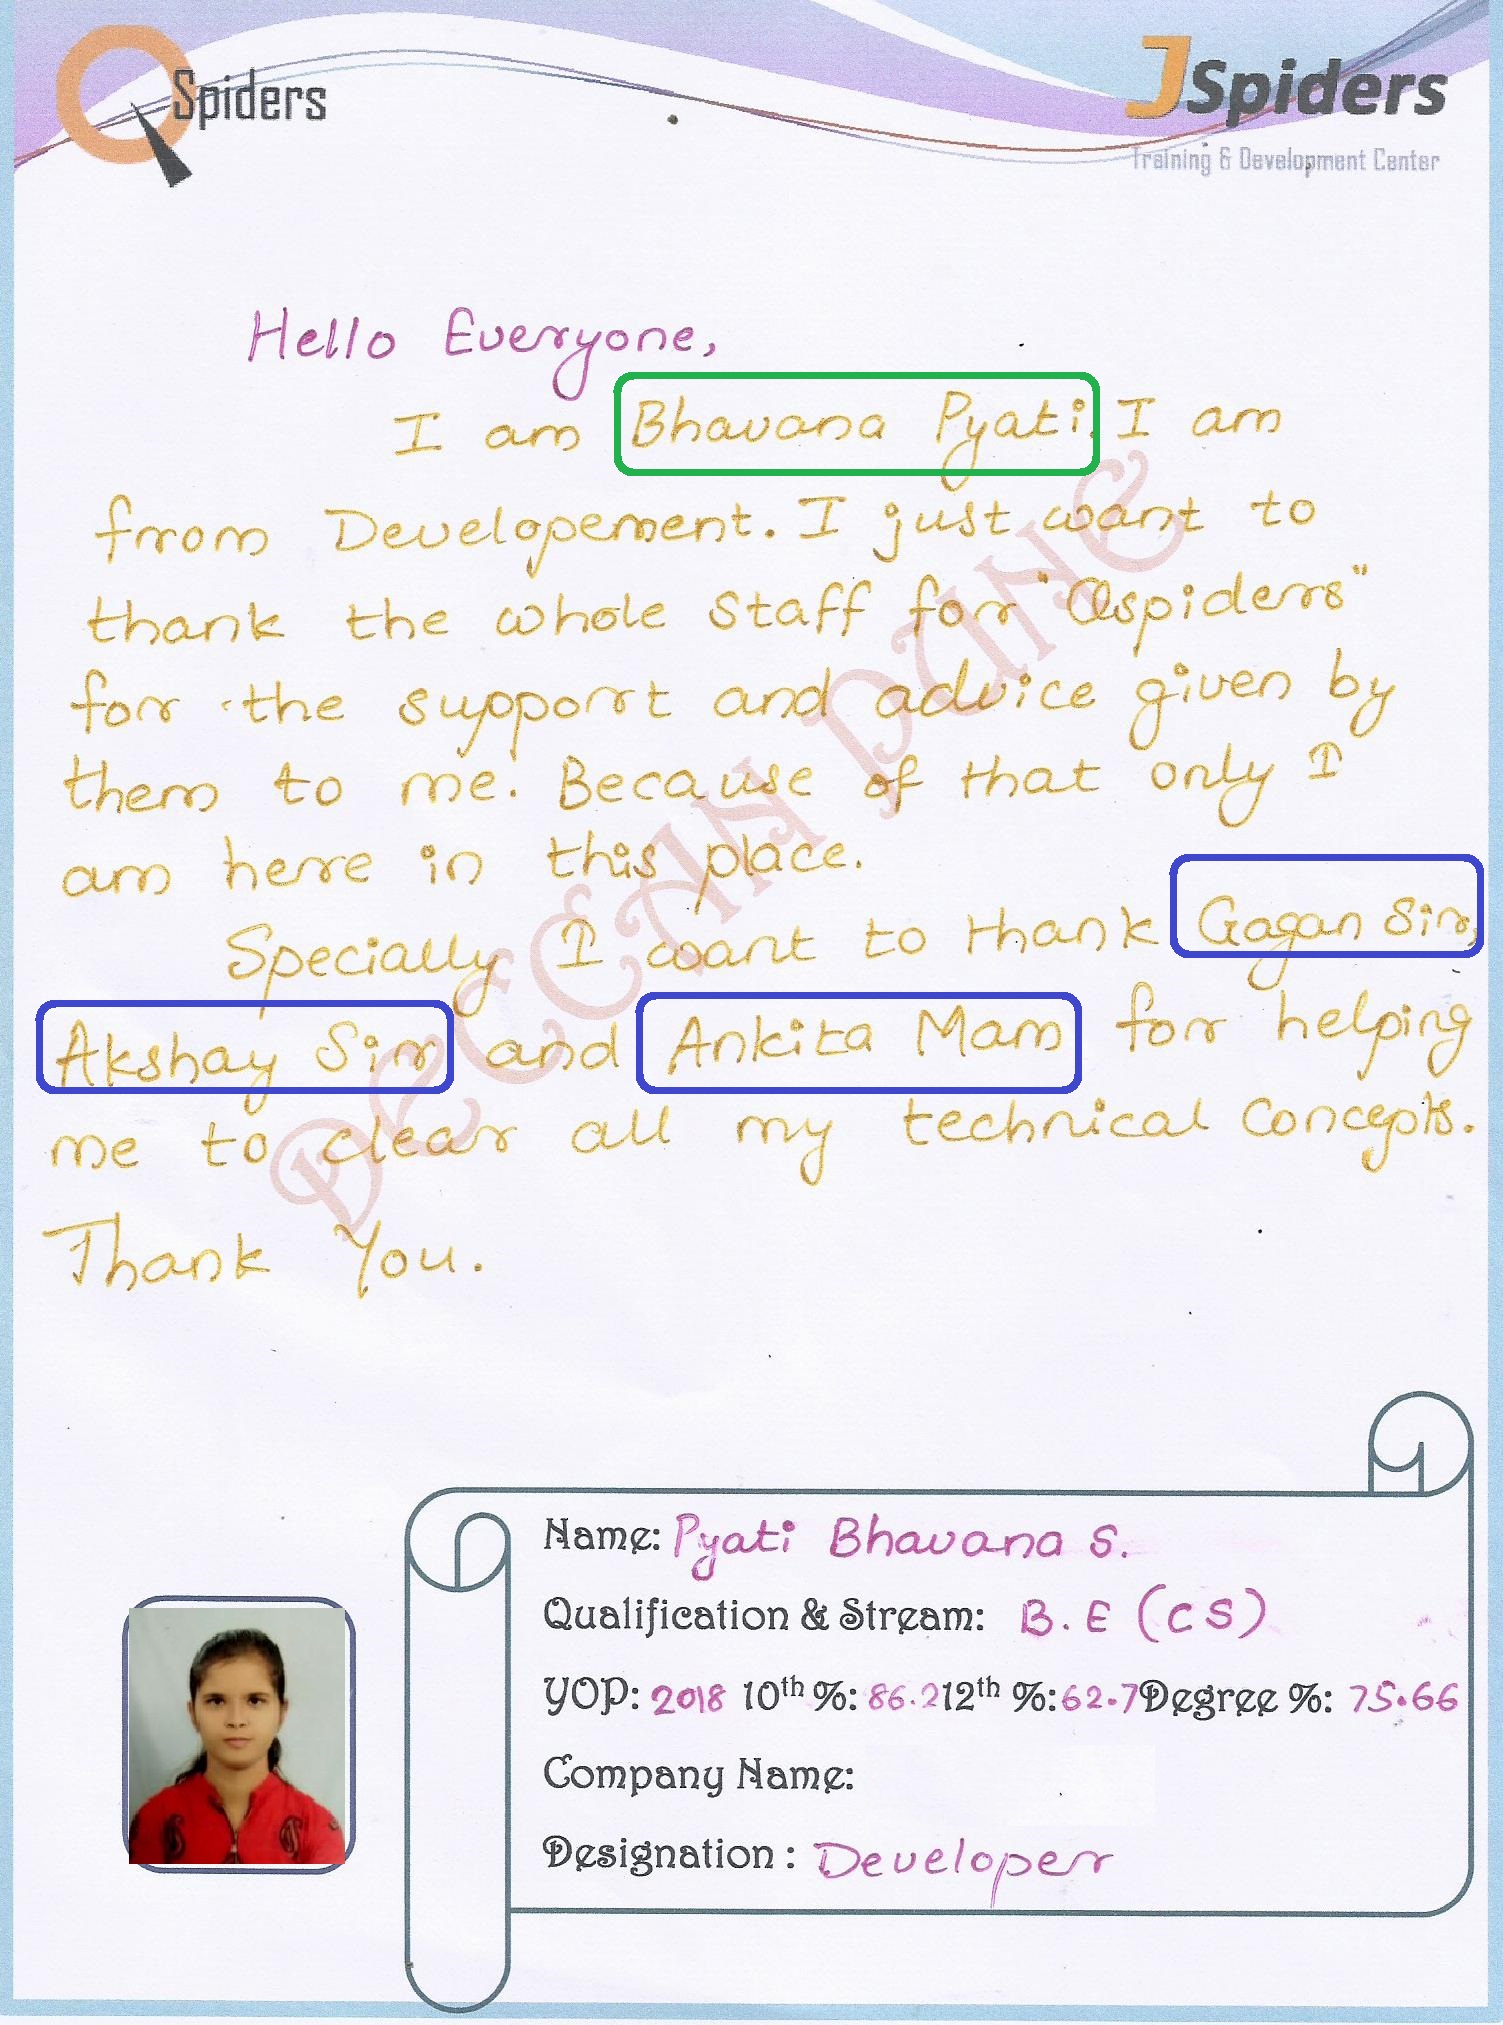 QSpiders
JSpiders
Training & Development Center
Hello Everyone,
I am Bhavana Pyati. I am
from Developement. I just want to
thank the whole staff for "Qspiders"
for the support and advice given by
them to me. Because of that only I
am here in this place.
Specially I want to thank Gagan Sir,
Akshay Sir and Ankita Mam for helping
me to clear all my technical concepts.
Thank You.
DECCAN PUNE
Name: Pyati Bhavana S.
Qualification & Stream: B.E (CS)
YOP: 2018 10th %: 86.2 12th %: 62.7 Degree %: 75.66
Company Name:
Designation : Developer